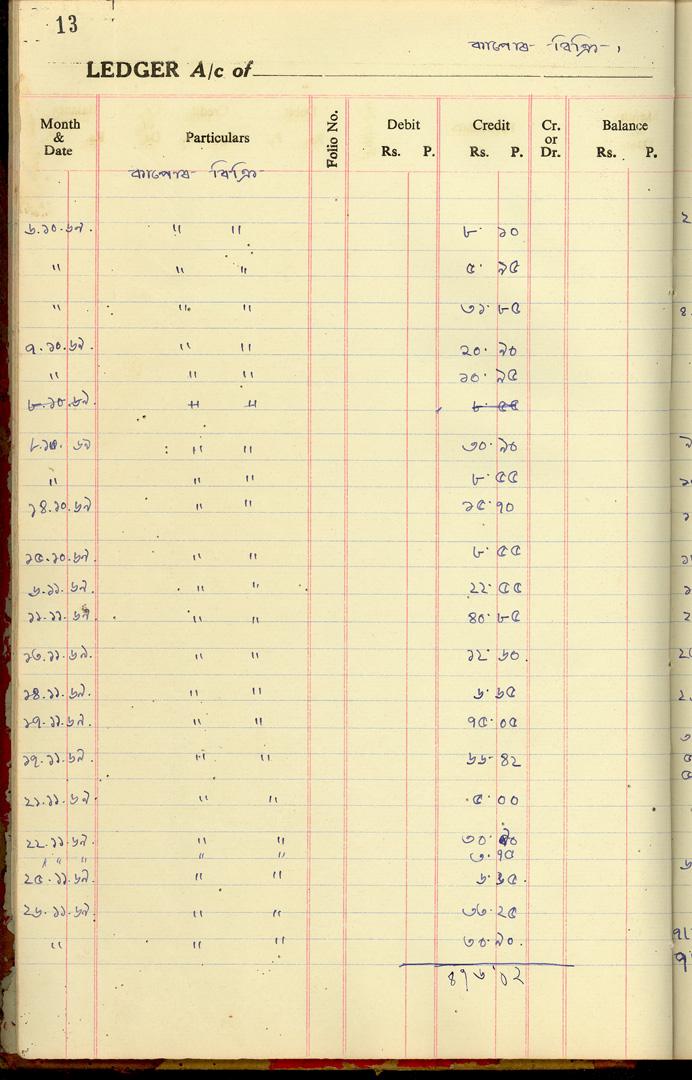 13
কাপোৰ বিক্ৰি ৷
LEDGER A/c of
Month & Date Particulars Folio No. Debit Rs. P. Credit Rs. P. Cr. or Dr. Balance Rs. P.
কাপোৰ বিক্ৰি
৬.১০.৬৯. " " ৮. ১০
" " " ৫. ৯৫
" " " ৩১. ৮৫
৭.১০.৬৯. " " ২০. ৯০
" " " ১০. ৯৫
৮.১০.৬৯. " " ৮. ৫৫
৮.১০. ৬৯ " " ৩০. ৯০
" " " ৮. ৫৫
১৪.১০.৬৯ " " ১৫. ৭০
১৫.১০.৬৯ " " ৮. ৫৫
৬.১১.৬৯. " " ২২. ৫৫
১১.১১.৬৯ " " ৪০. ৮৫
১৩.১১.৬৯. " " ১২. ৬০.
১৪.১১.৬৯. " " ৬. ৬৫
১৭.১১.৬৯. " " ৭৫. ০৫
১৭.১১.৬৯. " " ৬৬. ৪২
২১.১১.৬৯. " " ৫. ০০
২২.১১.৬৯. " " ৩০.
" " " " " ৩. ৭৫
২৫.১১.৬৯. " " ৬. ৬৫.
২৬.১১.৬৯. " " ৩৩. ২৫
" " " ৩০. ৯০.
৪৭৩.০২